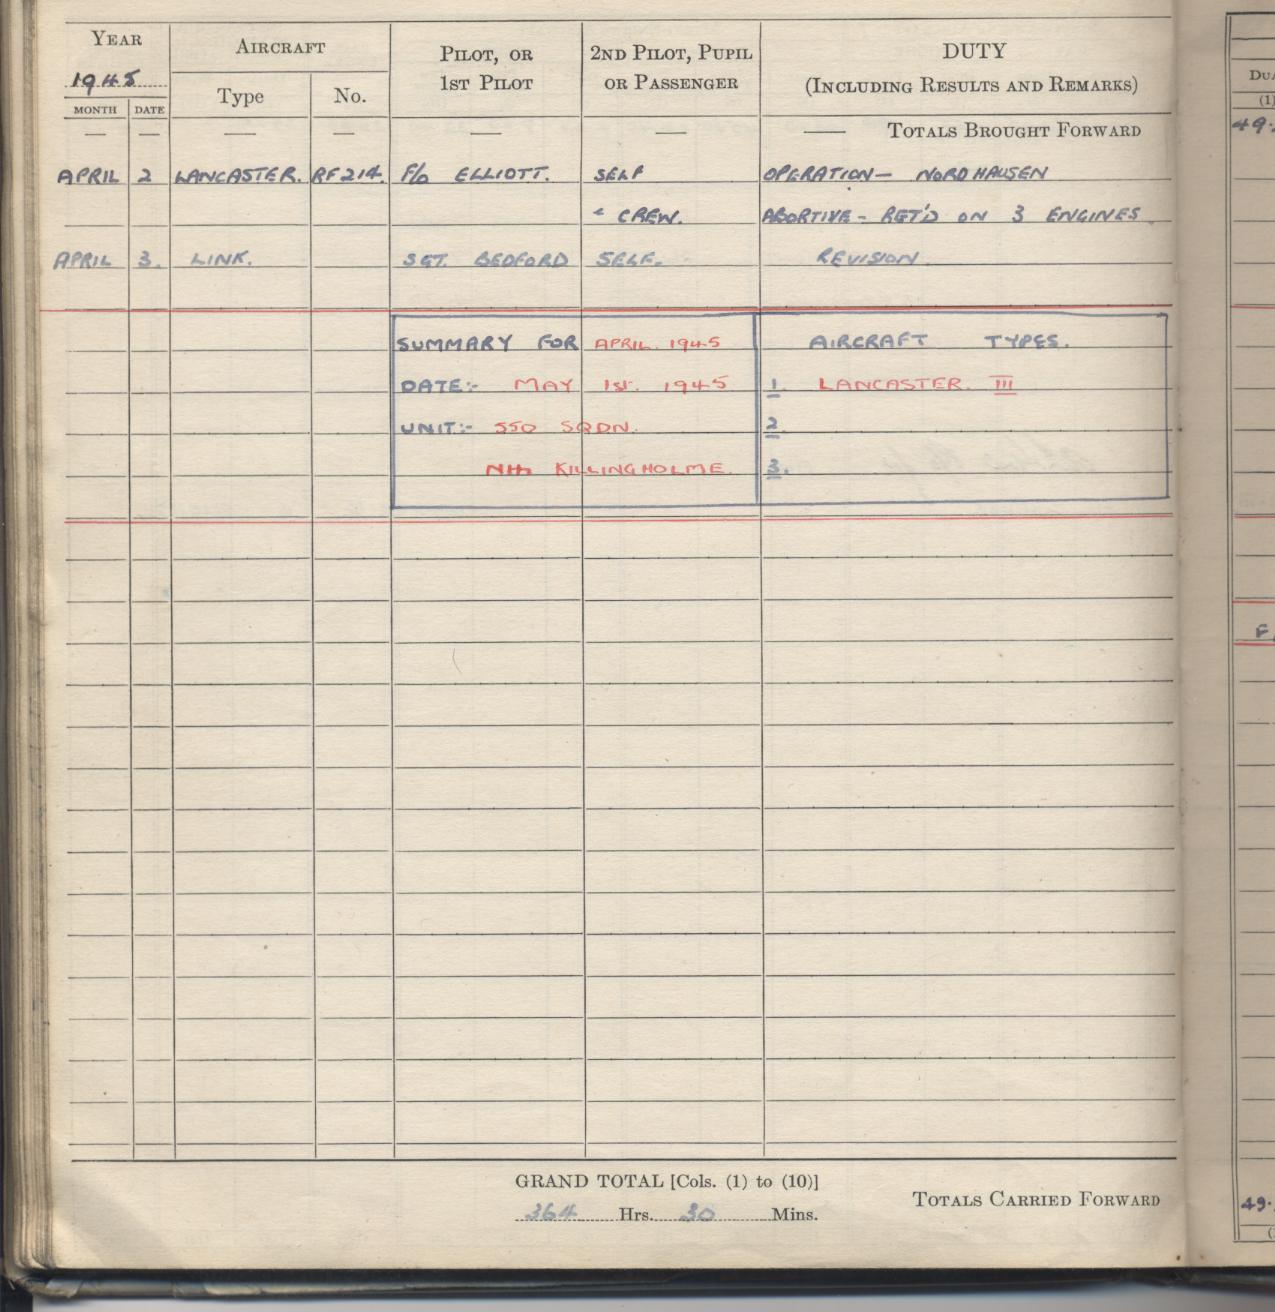 YEAR AIRCRAFT PILOT, OR 2ND PILOT, PUPIL DUTY
1945 Type No. 1ST PILOT OR PASSENGER (INCLUDING RESULTS AND REMARKS)
MONTH DATE
— — — — — — — TOTALS BROUGHT FORWARD
APRIL 2 LANCASTER. RF214. F/O ELLIOTT. SELF OPERATION — NORDHAUSEN
& CREW. ABORTIVE - RET'D ON 3 ENGINES.
APRIL 3. LINK. SGT. BEDFORD SELF. REVISION.
SUMMARY FOR APRIL. 1945 AIRCRAFT TYPES.
DATE:- MAY 1st. 1945 1. LANCASTER. III
UNIT:- 550 SQDN. 2
Nth KILLINGHOLME. 3.
GRAND TOTAL [Cols. (1) to (10)]
364 Hrs. 30 Mins. TOTALS CARRIED FORWARD
DUA
(1)
49.
F.
49.